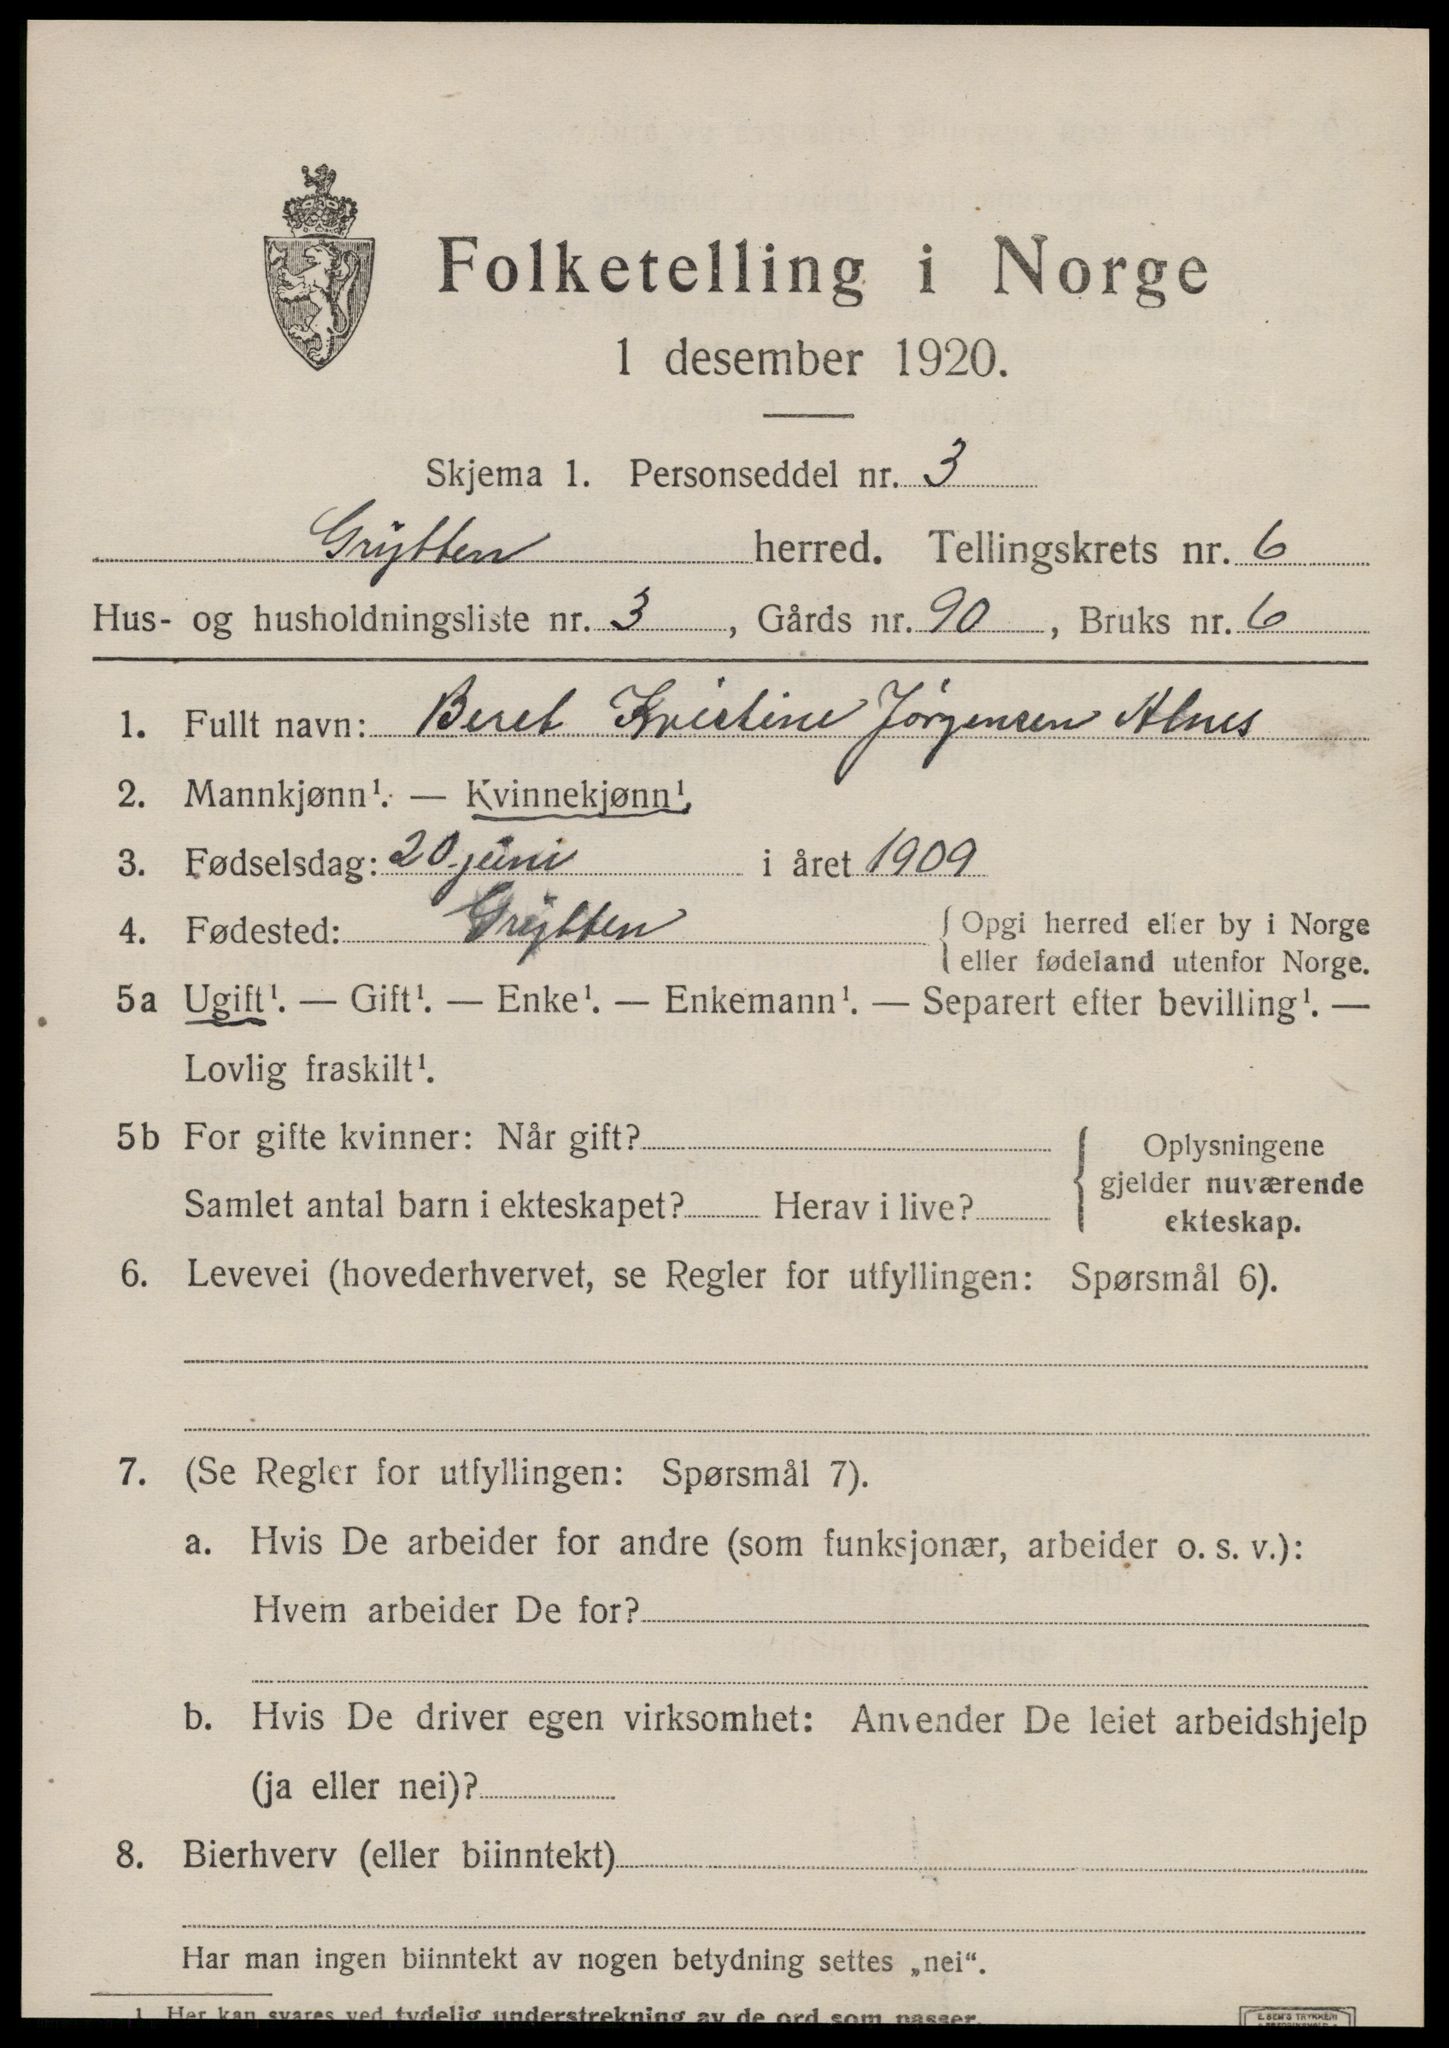 Folketelling i Norge
1 desember 1920.
Skjema 1. Personseddel nr. 3
Grytten herred. Tellingskrets nr. 6
Hus- og husholdningsliste nr. 3, Gårds nr. 90, Bruks nr. 6
1. Fullt navn: Beret Kristine Jörgensen Alnes
2. Mannkjønn¹. — Kvinnekjønn¹.
3. Fødselsdag: 20 juni i året 1909
4. Fødested: Grytten { Opgi herred eller by i Norge
eller fødeland utenfor Norge.
5a Ugift¹. — Gift¹. — Enke¹. — Enkemann¹. — Separert efter bevilling¹. —
Lovlig fraskilt¹.
5b For gifte kvinner: Når gift? { Oplysningene
gjelder nuværende
Samlet antal barn i ekteskapet? Herav i live? ekteskap.
6. Levevei (hovederhvervet, se Regler for utfyllingen: Spørsmål 6).
7. (Se Regler for utfyllingen: Spørsmål 7).
a. Hvis De arbeider for andre (som funksjonær, arbeider o. s. v.):
Hvem arbeider De for?
b. Hvis De driver egen virksomhet: Anvender De leiet arbeidshjelp
(ja eller nei)?
8. Bierhverv (eller biinntekt)
Har man ingen biinntekt av nogen betydning settes „nei“.
1. Her kan svares ved tydelig understrekning av de ord som passer.
E. SEM'S TRYKKERI